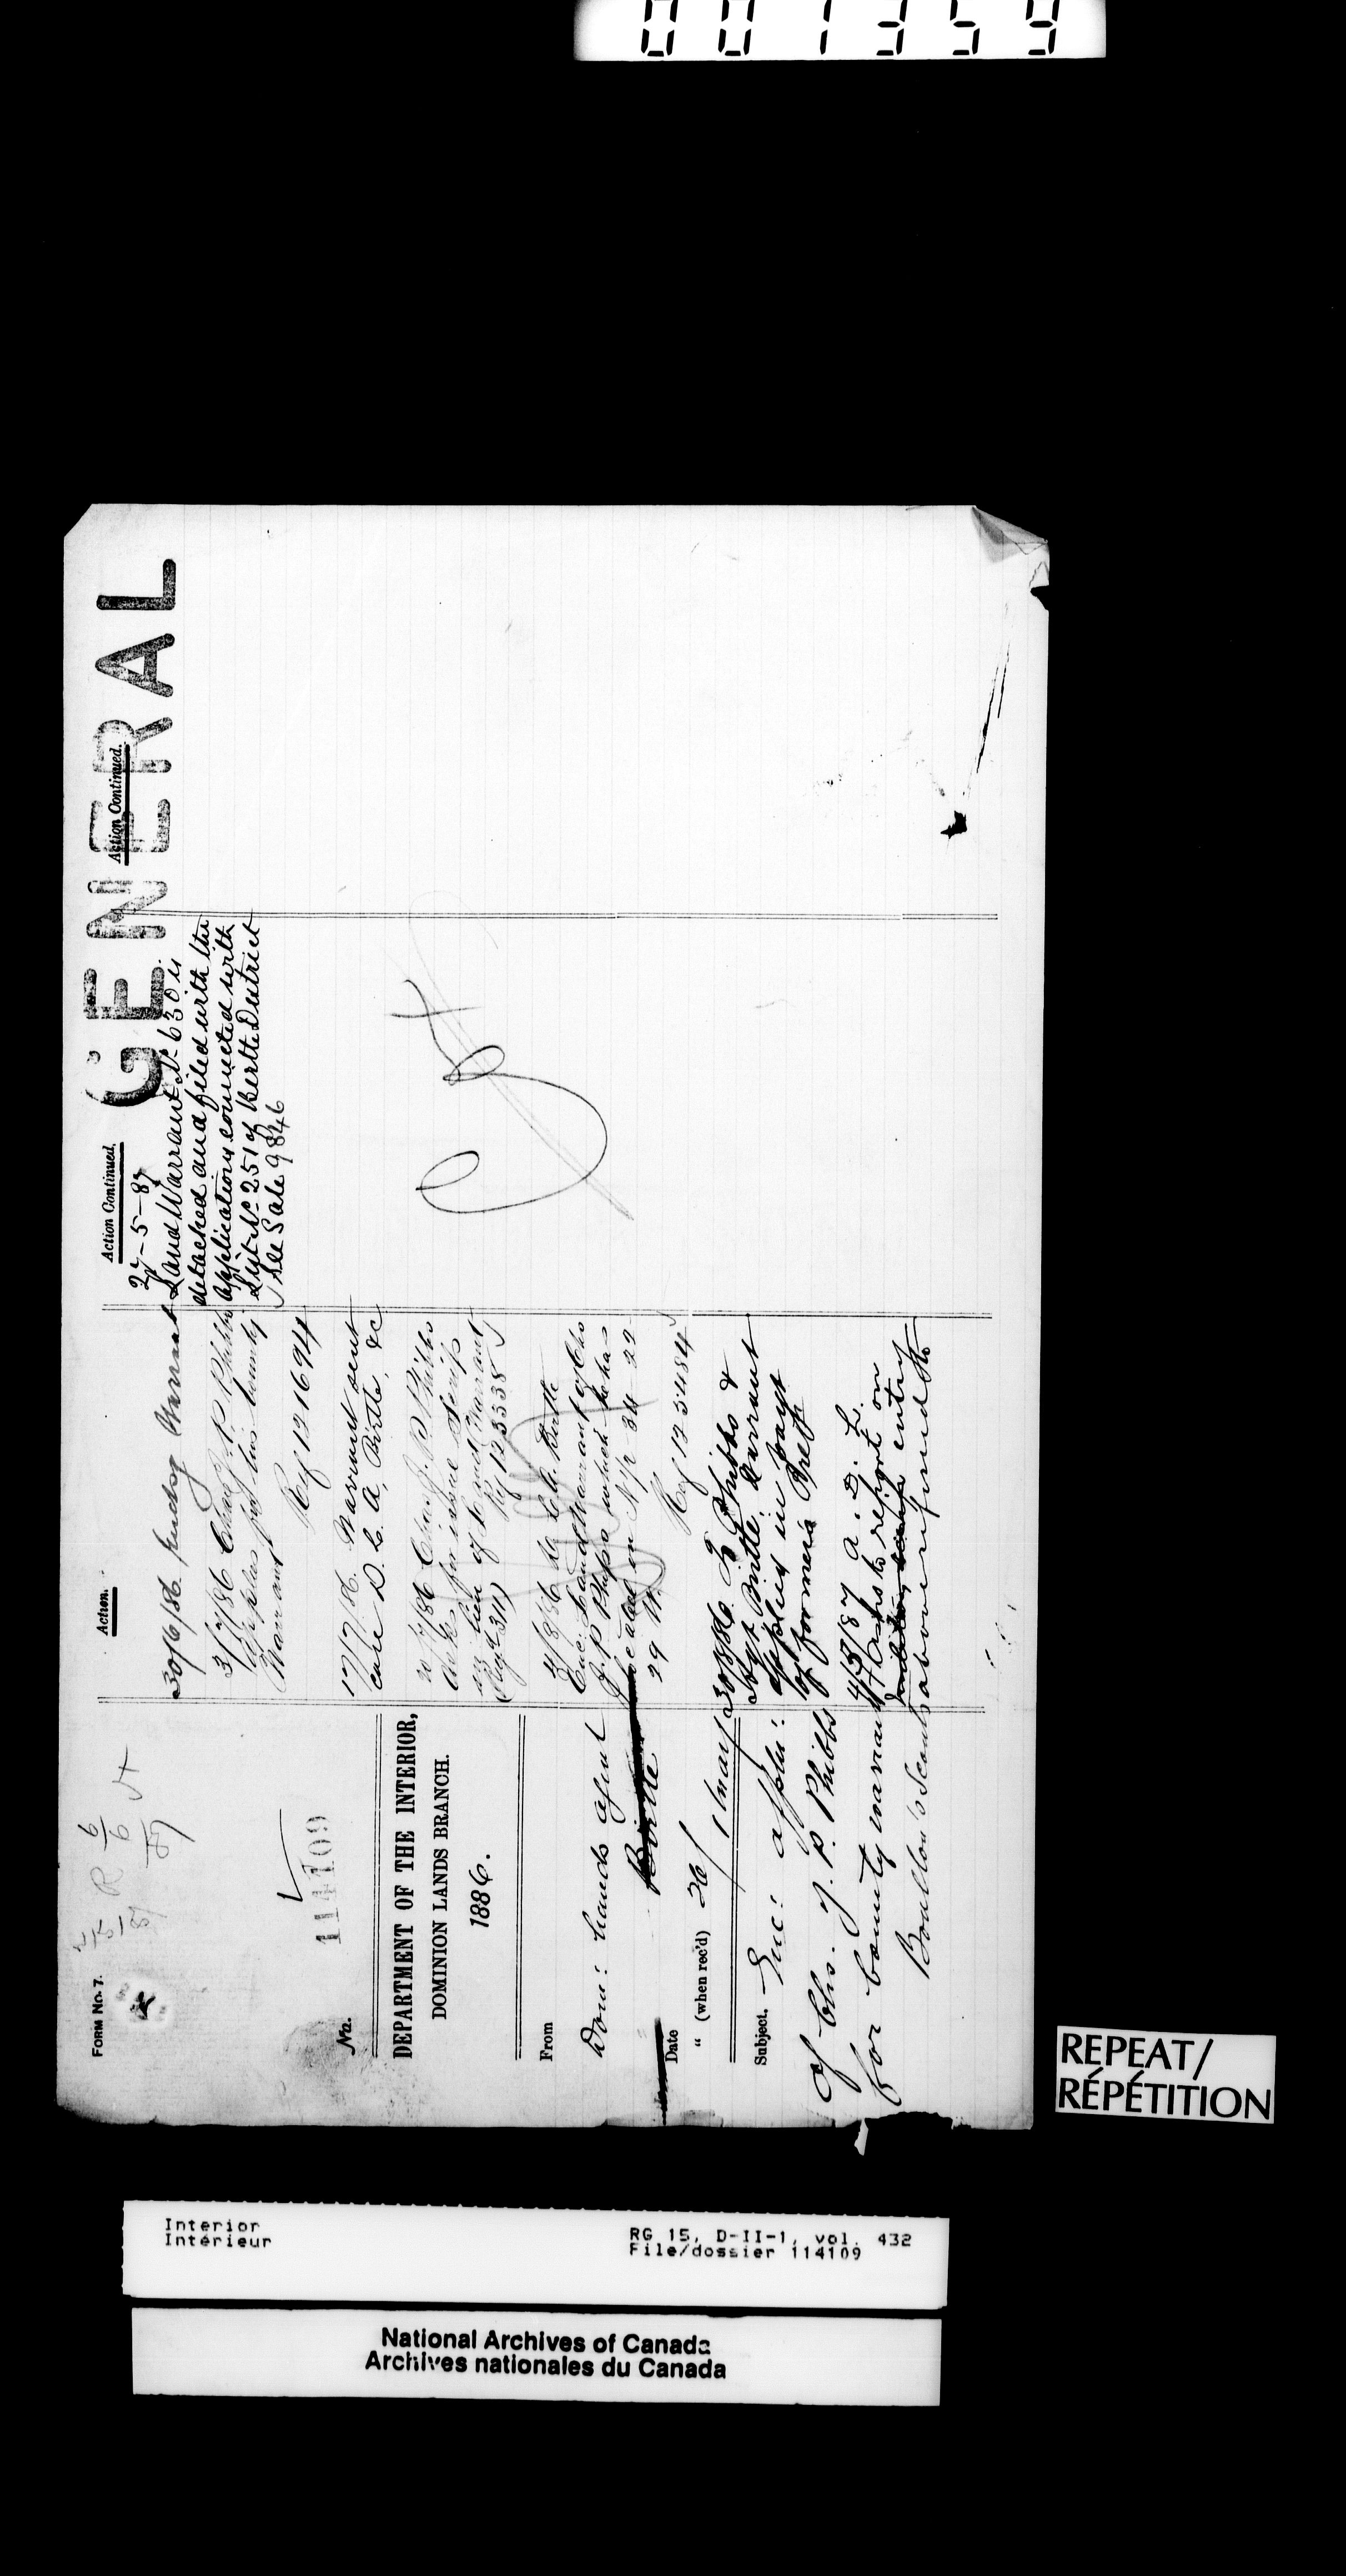 001359
GENERAL
FORM No. 7.
R 6/6/87
No. 114109
DEPARTMENT OF THE INTERIOR,
DOMINION LANDS BRANCH.
1886.
From
Dom: Lands Agent
Birtle
Date
" (when rec'd) 26/
Subject. Enc: appln:
of Chs. J. P. Phibbs
for bounty warrant
Boulton's Scouts
Action.
30/6/86. Warrant
3/7/86 Chas J. P. Phibbs
applies for his bounty
Warrant
Ref 121694
17/7/86. Warrant sent
care D. L. A, Birtle, &c
20/7/86 Chas. J. P. Phibbs
asks for issue Scrip
in lieu of Land Warrant
(Reg'd 311) Ref 123338
4/8/86 L. A. Birtle
Enc: Land Warrant of Chs
J. P. Phipps which he has
located on N½ 34 - 22 -
29 W.
Ref 123484
30/8/86. To Phibbs &
Agt Birtle. Warrant
applied in payt
of former's Pre p.
4/5/87 A. D. L.
Asks to report on
entry
above refused to
Action Continued.
27-5-87
Land Warrant No 630 is
detached and filed with the
applications connected with
List No 251 of Birtle District
See Sale 9846
Action Continued.
REPEAT/
RÉPÉTITION
Interior
Intérieur
RG 15, D-II-1, vol. 432
File/dossier 114109
National Archives of Canada
Archives nationales du Canada